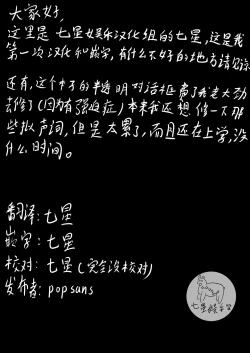 大家好,
这里是 七星娱乐汉化组的七星,这是我
第一次汉化和嵌字,有什么不好的地方请见谅
还有,这个本子的半透明对话框费了我老大劲
去修了(因为有强迫症)本来我还想修一下那
些拟声词,但是太累了,而且还在上学,没
什么时间。
翻译:七星
嵌字:七星
校对:七星(完全没校对)
发布者:popsans
七星